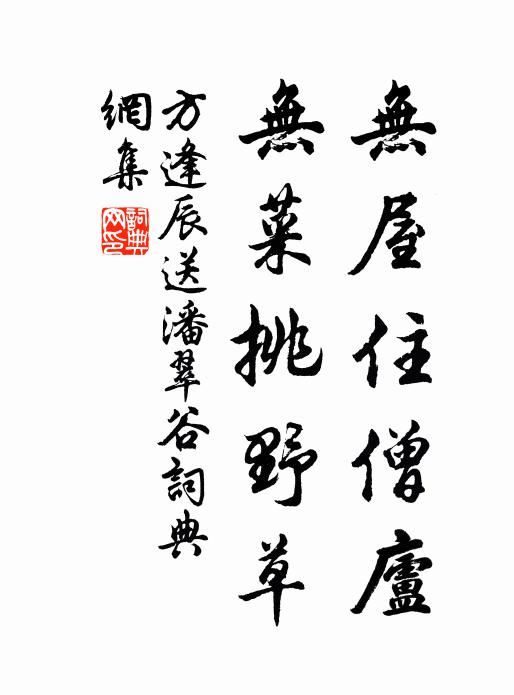 無屋住僧廬
無菜挑野草
方逢辰送潘翠谷詞典
網集
詞典网印